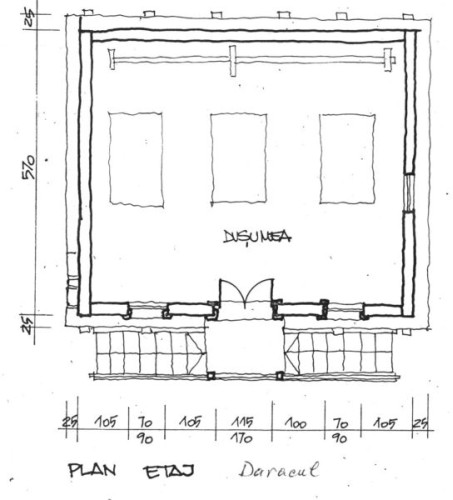 25
570
25
DUȘUMEA
25 105 70 105 115 100 70 105 25
90 170 90
PLAN ETAJ Daracul